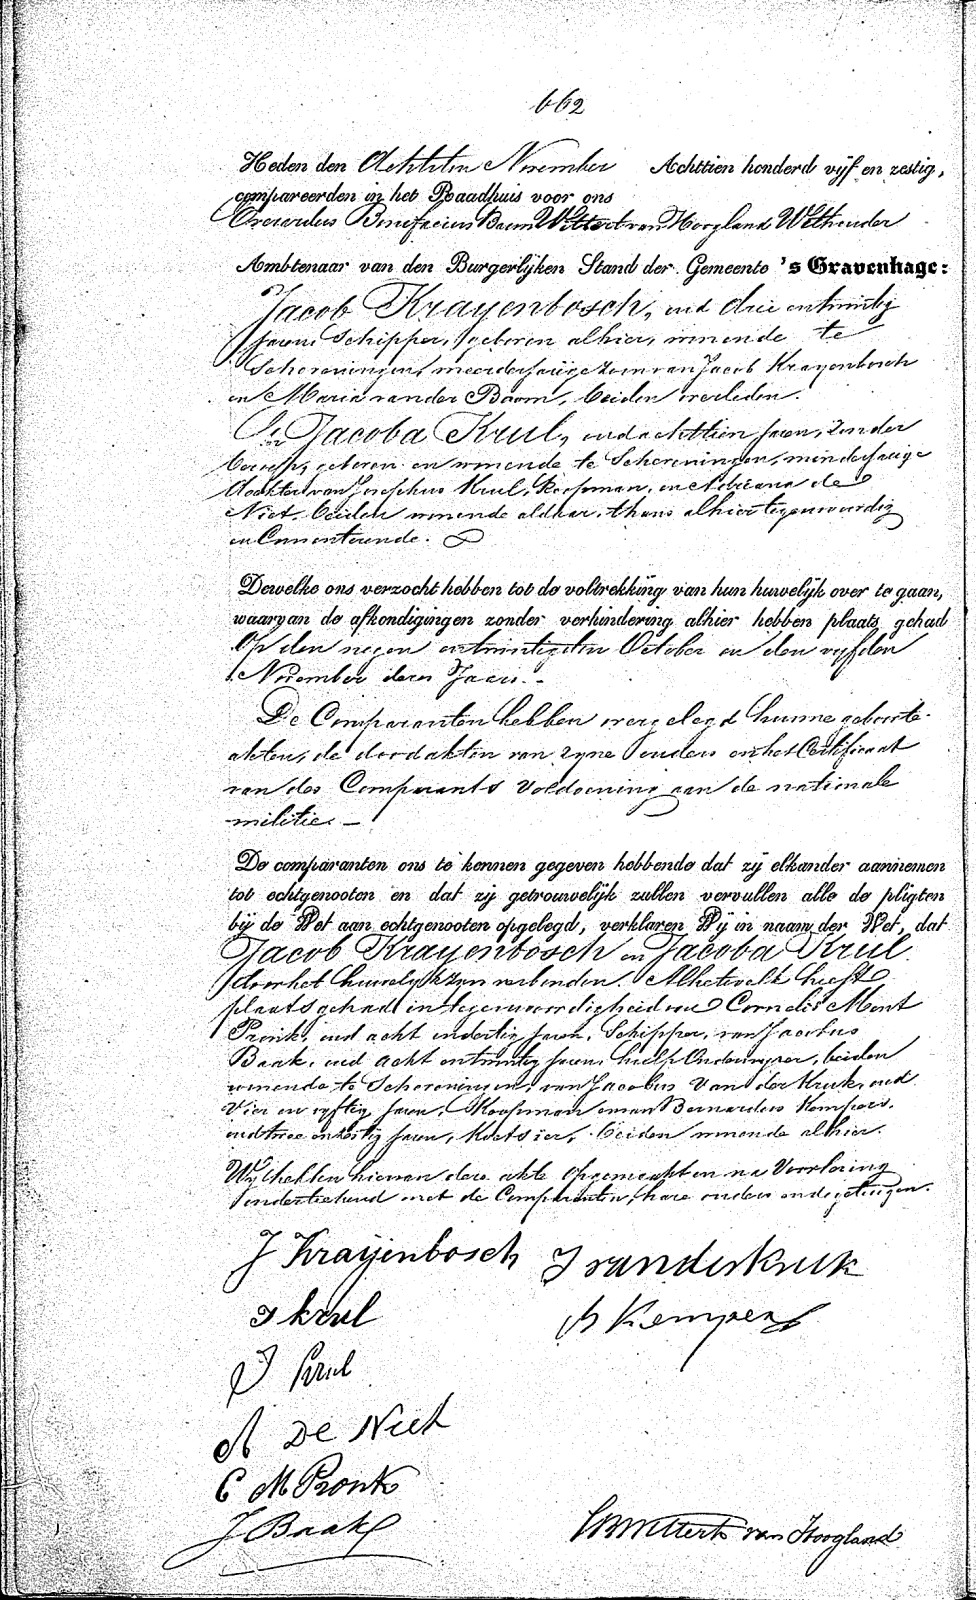 662
Heden den Achtsten November Achttien honderd vijf en zestig,
compareerden in het Raadhuis voor ons
Everardus Bonefacius Baron Wittert van Hoogland Wethouder
Ambtenaar van den Burgerlijken Stand der Gemeente 's Gravenhage:
Jacob Krayenbosch, oud drie en twintig
Jaren, Schipper, geboren alhier, wonende te
Scheveningen, meerderjarige zoon van Jacob Krayenbosch
en Maria van der Boom, beiden overleden.
En Jacoba Krul, oud achttien Jaren, zonder
beroep, geboren en wonende te Scheveningen, minderjarige
dochter van Josephus Krul, Koopman, en Adriana de
Niet, beiden wonende aldaar, thans alhier tegenwoordig
en Consenterende.
Dewelke ons verzocht hebben tot de voltrekking van hun huwelijk over te gaan,
waarvan de afkondigingen zonder verhindering alhier hebben plaats gehad
Op den negen en twintigsten October en den vyfden
November dezes Jaars.-
De Comparanten hebben overgelegd hunne geboorte-
akten, de doodakten van zyne ouders en het Certificaat
van des Comparants Voldoening aan de nationale
militie. -
De comparanten ons te kennen gegeven hebbende dat zij elkander aannemen
tot echtgenooten en dat zij getrouwelijk zullen vervullen alle de pligten
bij de Wet aan echtgenooten opgelegd, verklaren Wij in naam der Wet, dat
Jacob Krayenbosch en Jacoba Krul
door het huwelyk zyn verbonden. Al hetwelk heeft
plaats gehad in tegenwoordigheid van Cornelis Ment
Pronk, oud acht en dertig Jaren, Schipper, van Jacobus
Baak, oud acht en twintig Jaren, hulp Onderwyzer, beiden
wonende te Scheveningen, van Jacobus Van der Kruk, oud
Vier en vyftig Jaren, Koopman en van Bernardus Kempers,
oud twee en dertig Jaren, Koetsier, beiden wonende alhier.
Wij hebben hiervan deze akte opgemaakt en na Voorlezing
onderteekend met de Comparanten, hare ouders en de getuigen.
J Kraijenbosch J vanderkruk
J krul B Kempers
J Krul
A De Niet
C M Pronk
J Baak Wittert van Hoogland